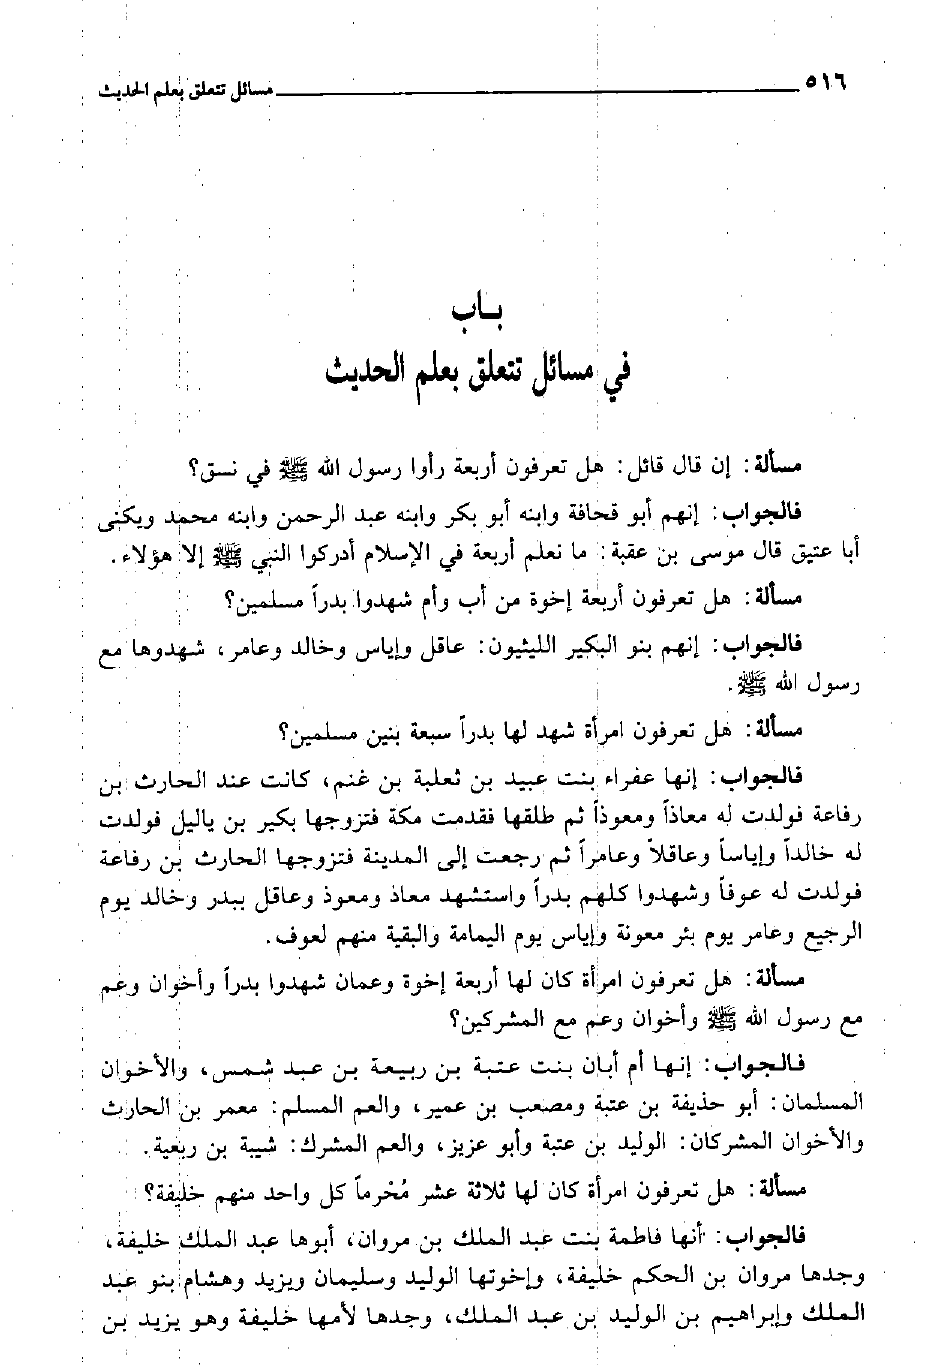 ٥١٦ مسائل تتعلق بعلم الحديث
بـاب
في مسائل تتعلق بعلم الحديث
مسألة: إن قال قائل: هل تعرفون أربعة رأوا رسول الله ﷺ في نسق؟
فالجواب: إنهم أبو قحافة وابنه أبو بكر وابنه عبد الرحمن وابنه محمد ويكنى
أبا عتيق قال موسى بن عقبة: ما نعلم أربعة في الإسلام أدركوا النبي ﷺ إلا هؤلاء.
مسألة: هل تعرفون أربعة إخوة من أب وأم شهدوا بدراً مسلمين؟
فالجواب: إنهم بنو البكير الليثيون: عاقل وإياس وخالد وعامر، شهدوها مع
رسول الله ﷺ.
مسألة: هل تعرفون امرأة شهد لها بدراً سبعة بنين مسلمين؟
فالجواب: إنها عفراء بنت عبيد بن ثعلبة بن غنم، كانت عند الحارث بن
رفاعة فولدت له معاذاً ومعوذاً ثم طلقها فقدمت مكة فتزوجها بكير بن ياليل فولدت
له خالداً وإياساً وعاقلاً وعامراً ثم رجعت إلى المدينة فتزوجها الحارث بن رفاعة
فولدت له عوفاً وشهدوا كلهم بدراً واستشهد معاذ ومعوذ وعاقل ببدر وخالد يوم
الرجيع وعامر يوم بئر معونة وإياس يوم اليمامة والبقية منهم لعوف.
مسألة: هل تعرفون امرأة كان لها أربعة إخوة وعمان شهدوا بدراً وأخوان وعم
مع رسول الله ﷺ وأخوان وعم مع المشركين؟
فالجواب: إنها أم أبان بنت عتبة بن ربيعة بن عبد شمس، والأخوان
المسلمان: أبو حذيفة بن عتبة ومصعب بن عمير، والعم المسلم: معمر بن الحارث
والأخوان المشركان: الوليد بن عتبة وأبو عزيز، والعم المشرك: شيبة بن ربعية.
مسألة: هل تعرفون امرأة كان لها ثلاثة عشر مُحْرماً كل واحد منهم خليفة؟
فالجواب: أنها فاطمة بنت عبد الملك بن مروان، أبوها عبد الملك خليفة،
وجدها مروان بن الحكم خليفة، وإخوتها الوليد وسليمان ويزيد وهشام بنو عبد
الملك وإبراهيم بن الوليد بن عبد الملك، وجدها لأمها خليفة وهو يزيد بن